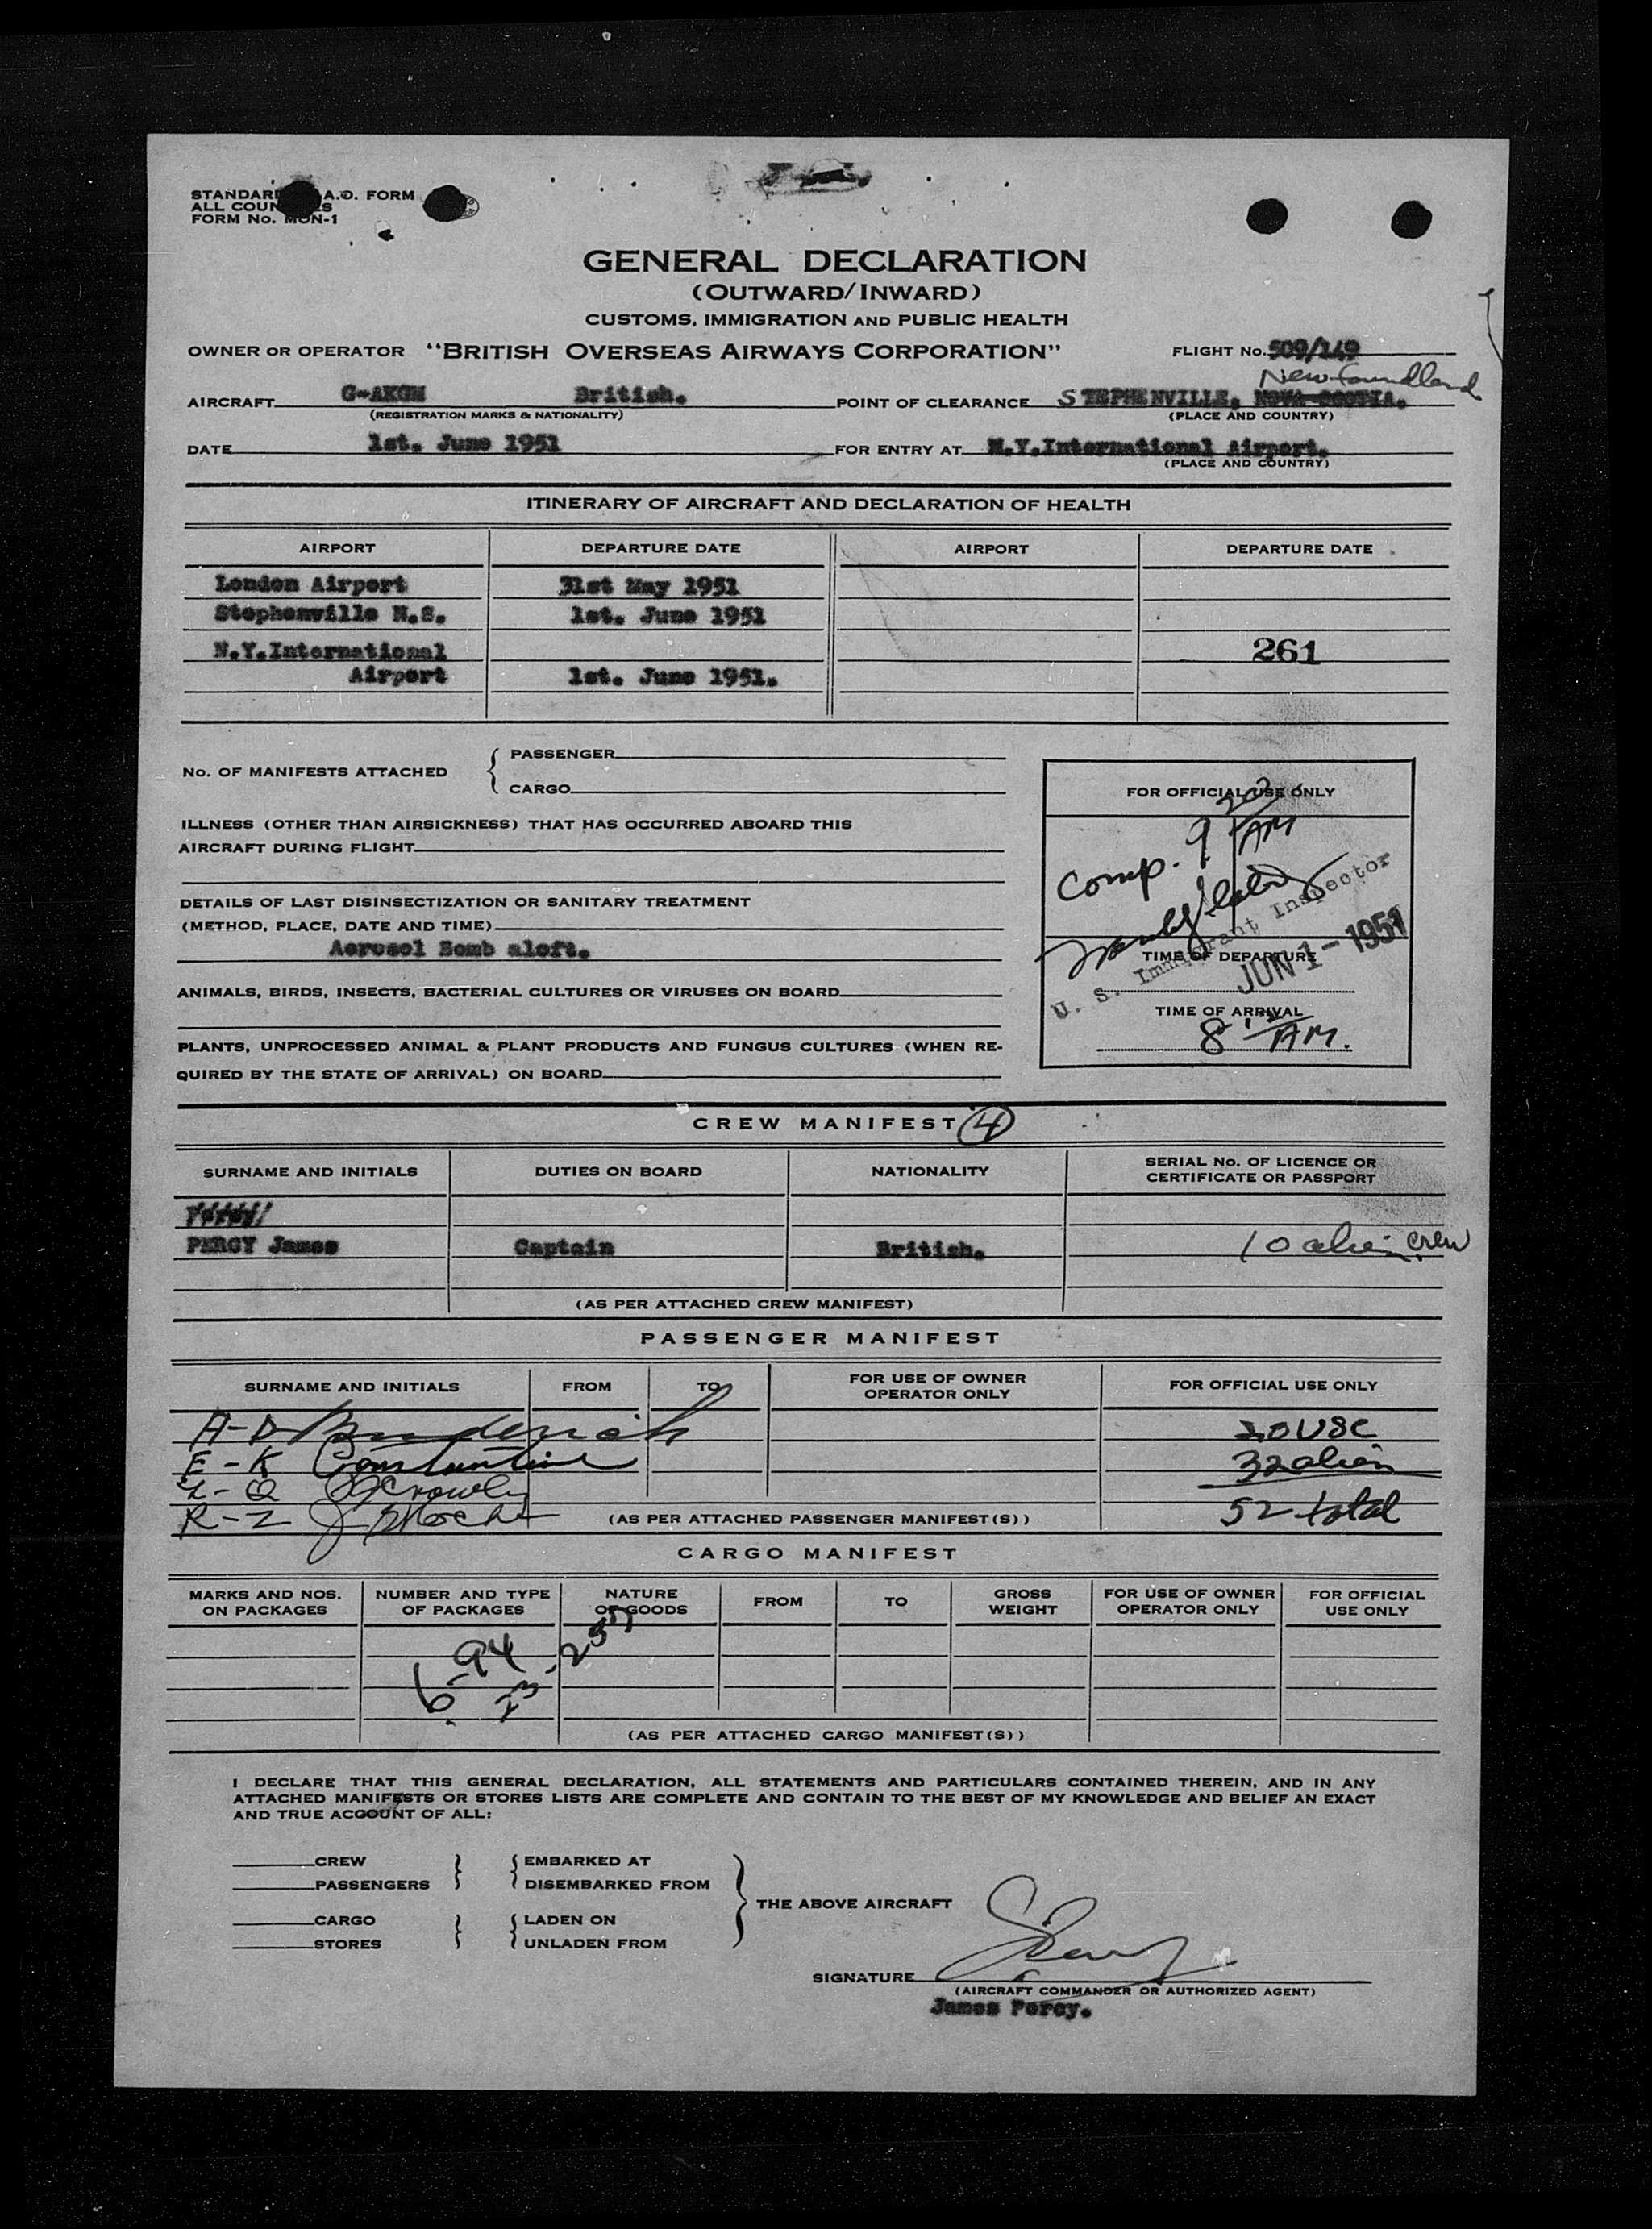 STANDARD A.O. FORM
ALL COUNTRIES
FORM No. MON-1
GENERAL DECLARATION
(OUTWARD/INWARD)
CUSTOMS, IMMIGRATION AND PUBLIC HEALTH
OWNER OR OPERATOR "BRITISH OVERSEAS AIRWAYS CORPORATION" FLIGHT No. 509/149
Newfoundland
AIRCRAFT G-AKGM British. POINT OF CLEARANCE STEPHENVILLE, NOVA SCOTIA.
(REGISTRATION MARKS & NATIONALITY) (PLACE AND COUNTRY)
DATE 1st. June 1951 FOR ENTRY AT N.Y.International Airport.
(PLACE AND COUNTRY)
ITINERARY OF AIRCRAFT AND DECLARATION OF HEALTH
AIRPORT DEPARTURE DATE AIRPORT DEPARTURE DATE
London Airport 31st May 1951
Stephenville N.S. 1st. June 1951
N.Y.International 261
Airport 1st. June 1951.
No. OF MANIFESTS ATTACHED
PASSENGER
CARGO
ILLNESS (OTHER THAN AIRSICKNESS) THAT HAS OCCURRED ABOARD THIS
AIRCRAFT DURING FLIGHT
DETAILS OF LAST DISINSECTIZATION OR SANITARY TREATMENT
(METHOD, PLACE, DATE AND TIME)
Aerosol Bomb aloft.
ANIMALS, BIRDS, INSECTS, BACTERIAL CULTURES OR VIRUSES ON BOARD
PLANTS, UNPROCESSED ANIMAL & PLANT PRODUCTS AND FUNGUS CULTURES (WHEN RE-
QUIRED BY THE STATE OF ARRIVAL) ON BOARD
FOR OFFICIAL USE ONLY
Comp. 9 20 AM
U. S. Immigrant Inspector
JUN 1 - 1951
TIME OF DEPARTURE
TIME OF ARRIVAL
8 12 AM.
CREW MANIFEST 4
SURNAME AND INITIALS DUTIES ON BOARD NATIONALITY SERIAL No. OF LICENCE OR
CERTIFICATE OR PASSPORT
PERCY James Captain British. 10 alien crew
(AS PER ATTACHED CREW MANIFEST)
PASSENGER MANIFEST
SURNAME AND INITIALS FROM TO FOR USE OF OWNER
OPERATOR ONLY FOR OFFICIAL USE ONLY
A-D 20 USC
E-K Constantine 32 alien
L-Q Crowley
R-Z (AS PER ATTACHED PASSENGER MANIFEST(S)) 52 total
CARGO MANIFEST
MARKS AND NOS.
ON PACKAGES NUMBER AND TYPE
OF PACKAGES NATURE
OF GOODS FROM TO GROSS
WEIGHT FOR USE OF OWNER
OPERATOR ONLY FOR OFFICIAL
USE ONLY
6-94
(AS PER ATTACHED CARGO MANIFEST(S))
I DECLARE THAT THIS GENERAL DECLARATION, ALL STATEMENTS AND PARTICULARS CONTAINED THEREIN, AND IN ANY
ATTACHED MANIFESTS OR STORES LISTS ARE COMPLETE AND CONTAIN TO THE BEST OF MY KNOWLEDGE AND BELIEF AN EXACT
AND TRUE ACCOUNT OF ALL:
CREW EMBARKED AT
PASSENGERS DISEMBARKED FROM
THE ABOVE AIRCRAFT
CARGO LADEN ON
STORES UNLADEN FROM
SIGNATURE
(AIRCRAFT COMMANDER OR AUTHORIZED AGENT)
James Percy.